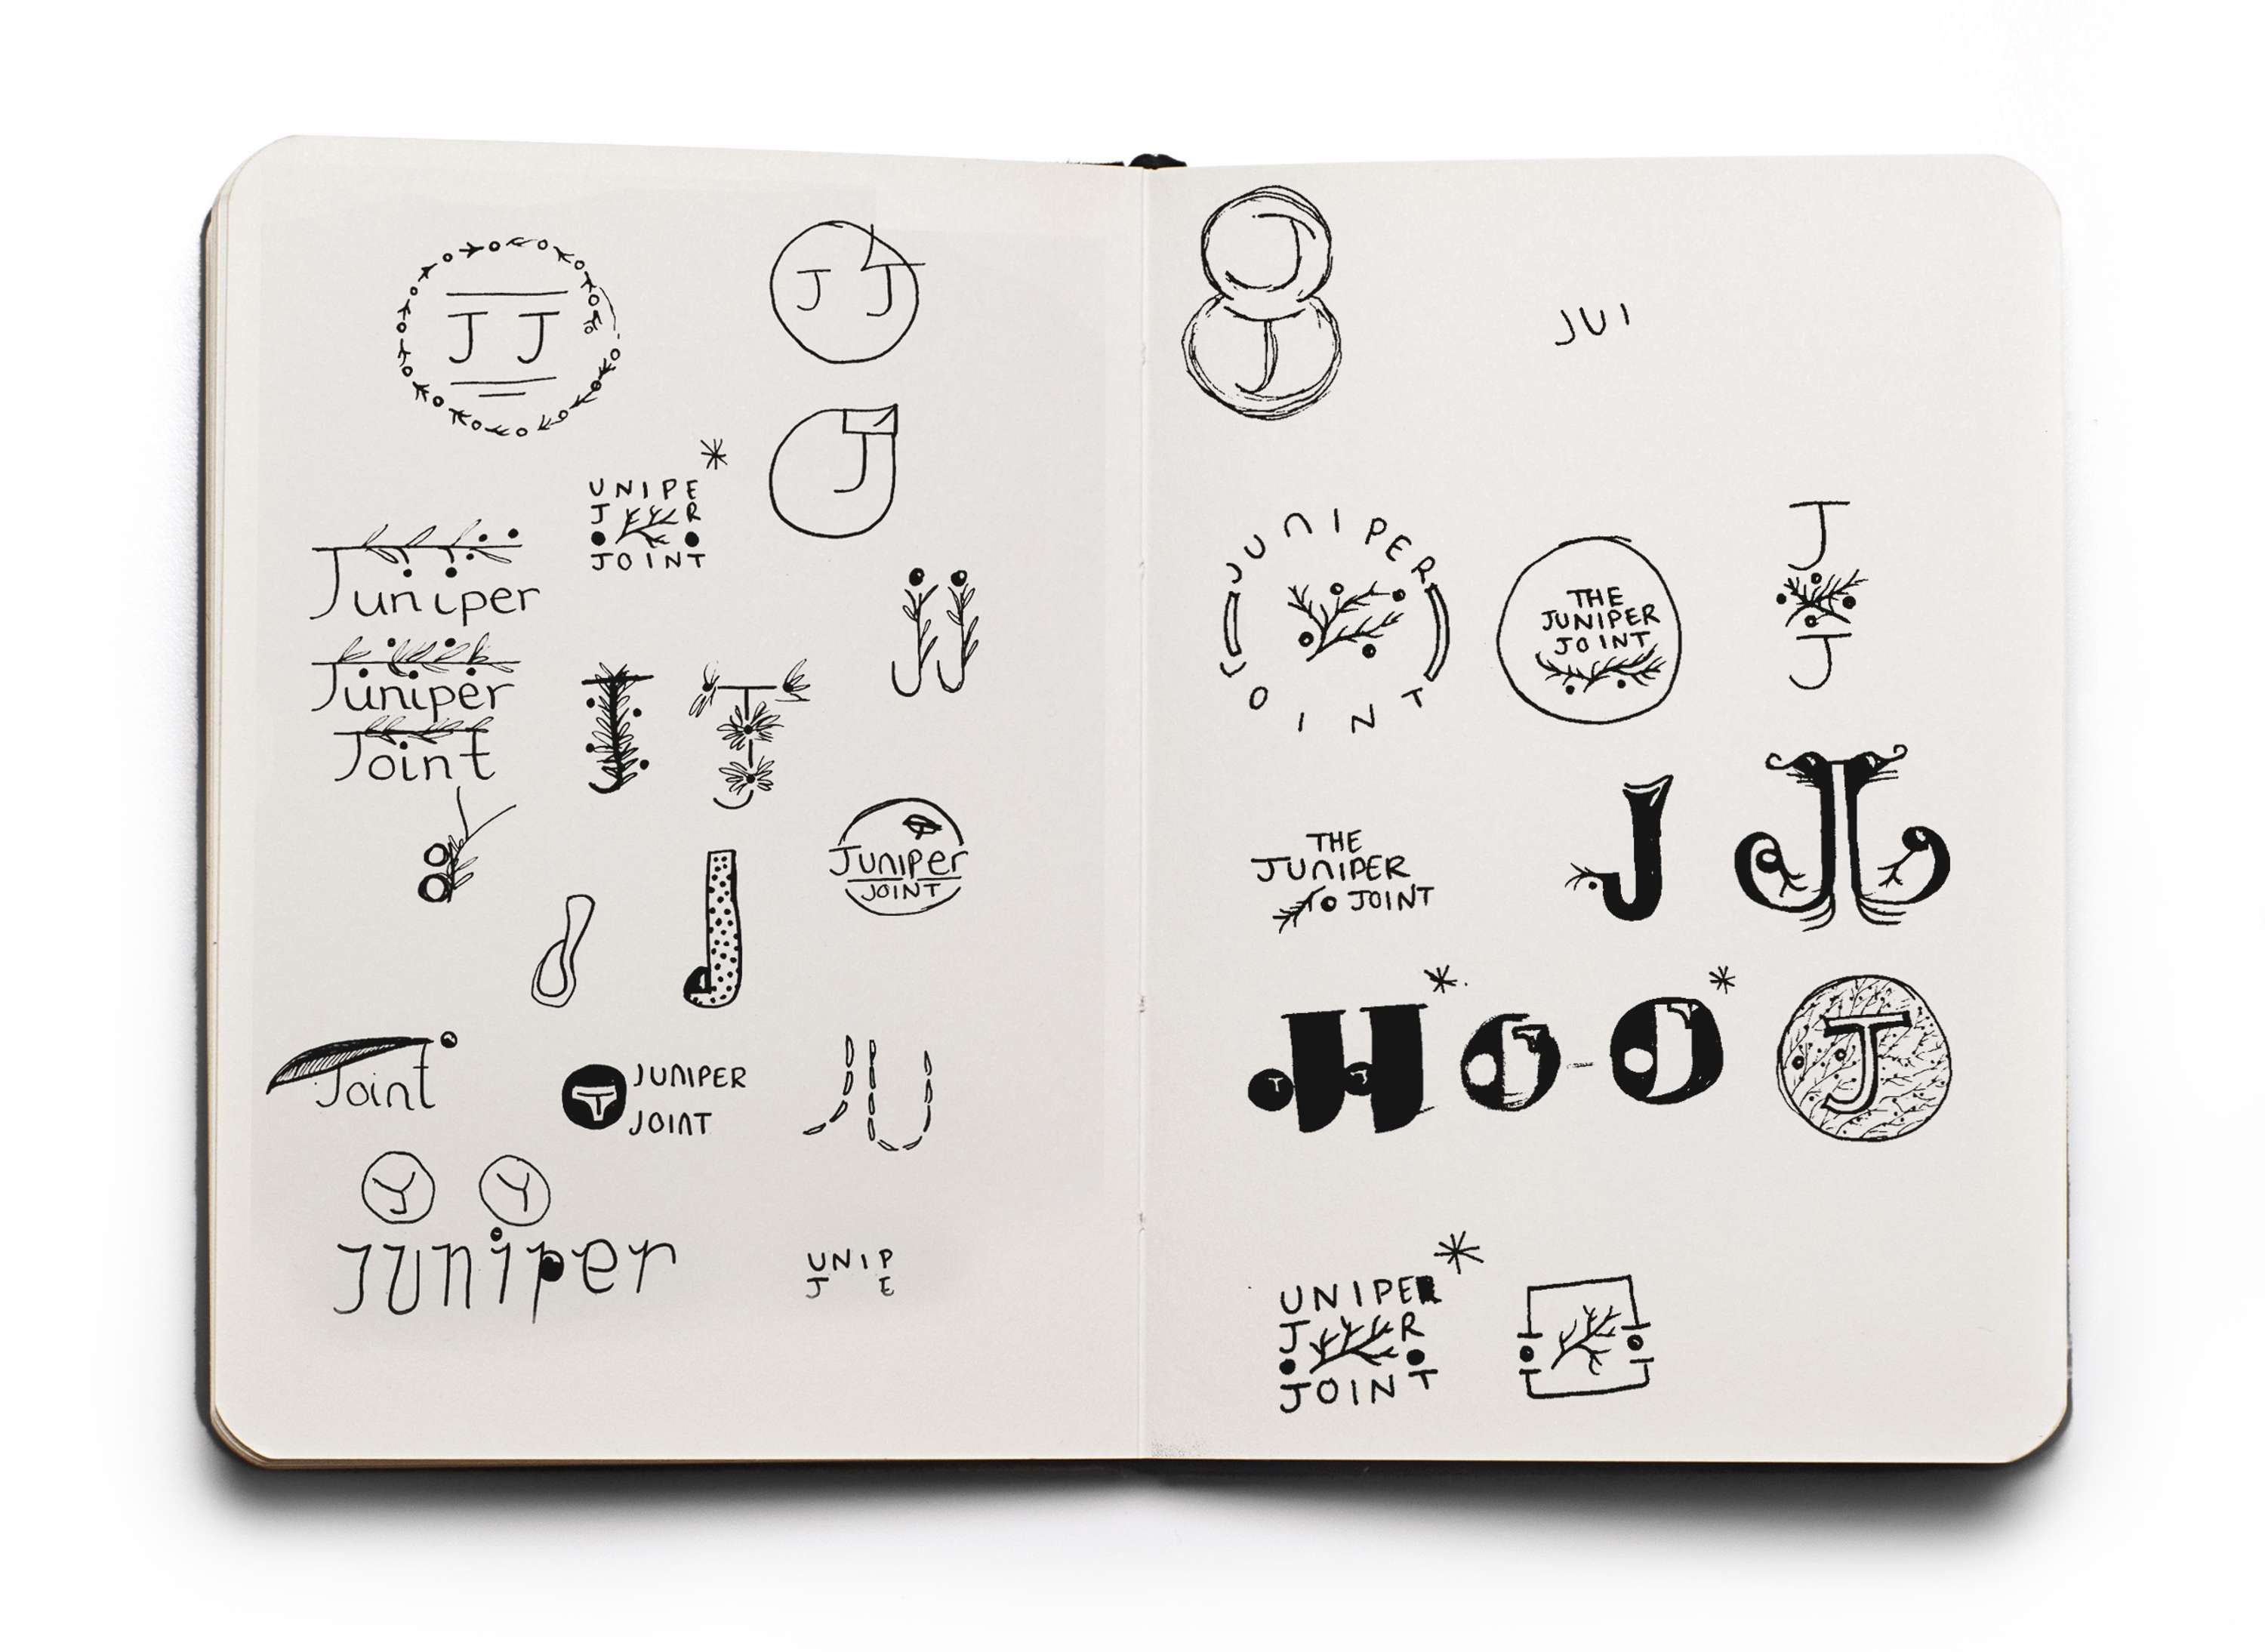 J J
J J
J
UNIPE
J R
JOINT
Juniper
Juniper
Joint
J J
J
J
J
J
Juniper
JOINT
Joint
JUNIPER
JOINT
JU
Juniper
UNIP
J E
J
J
JUI
JUNIPER
JOINT
THE
JUNIPER
JOINT
J
J
THE
JUNIPER
JOINT
J
JJ
J
UNIPER
J R
JOINT